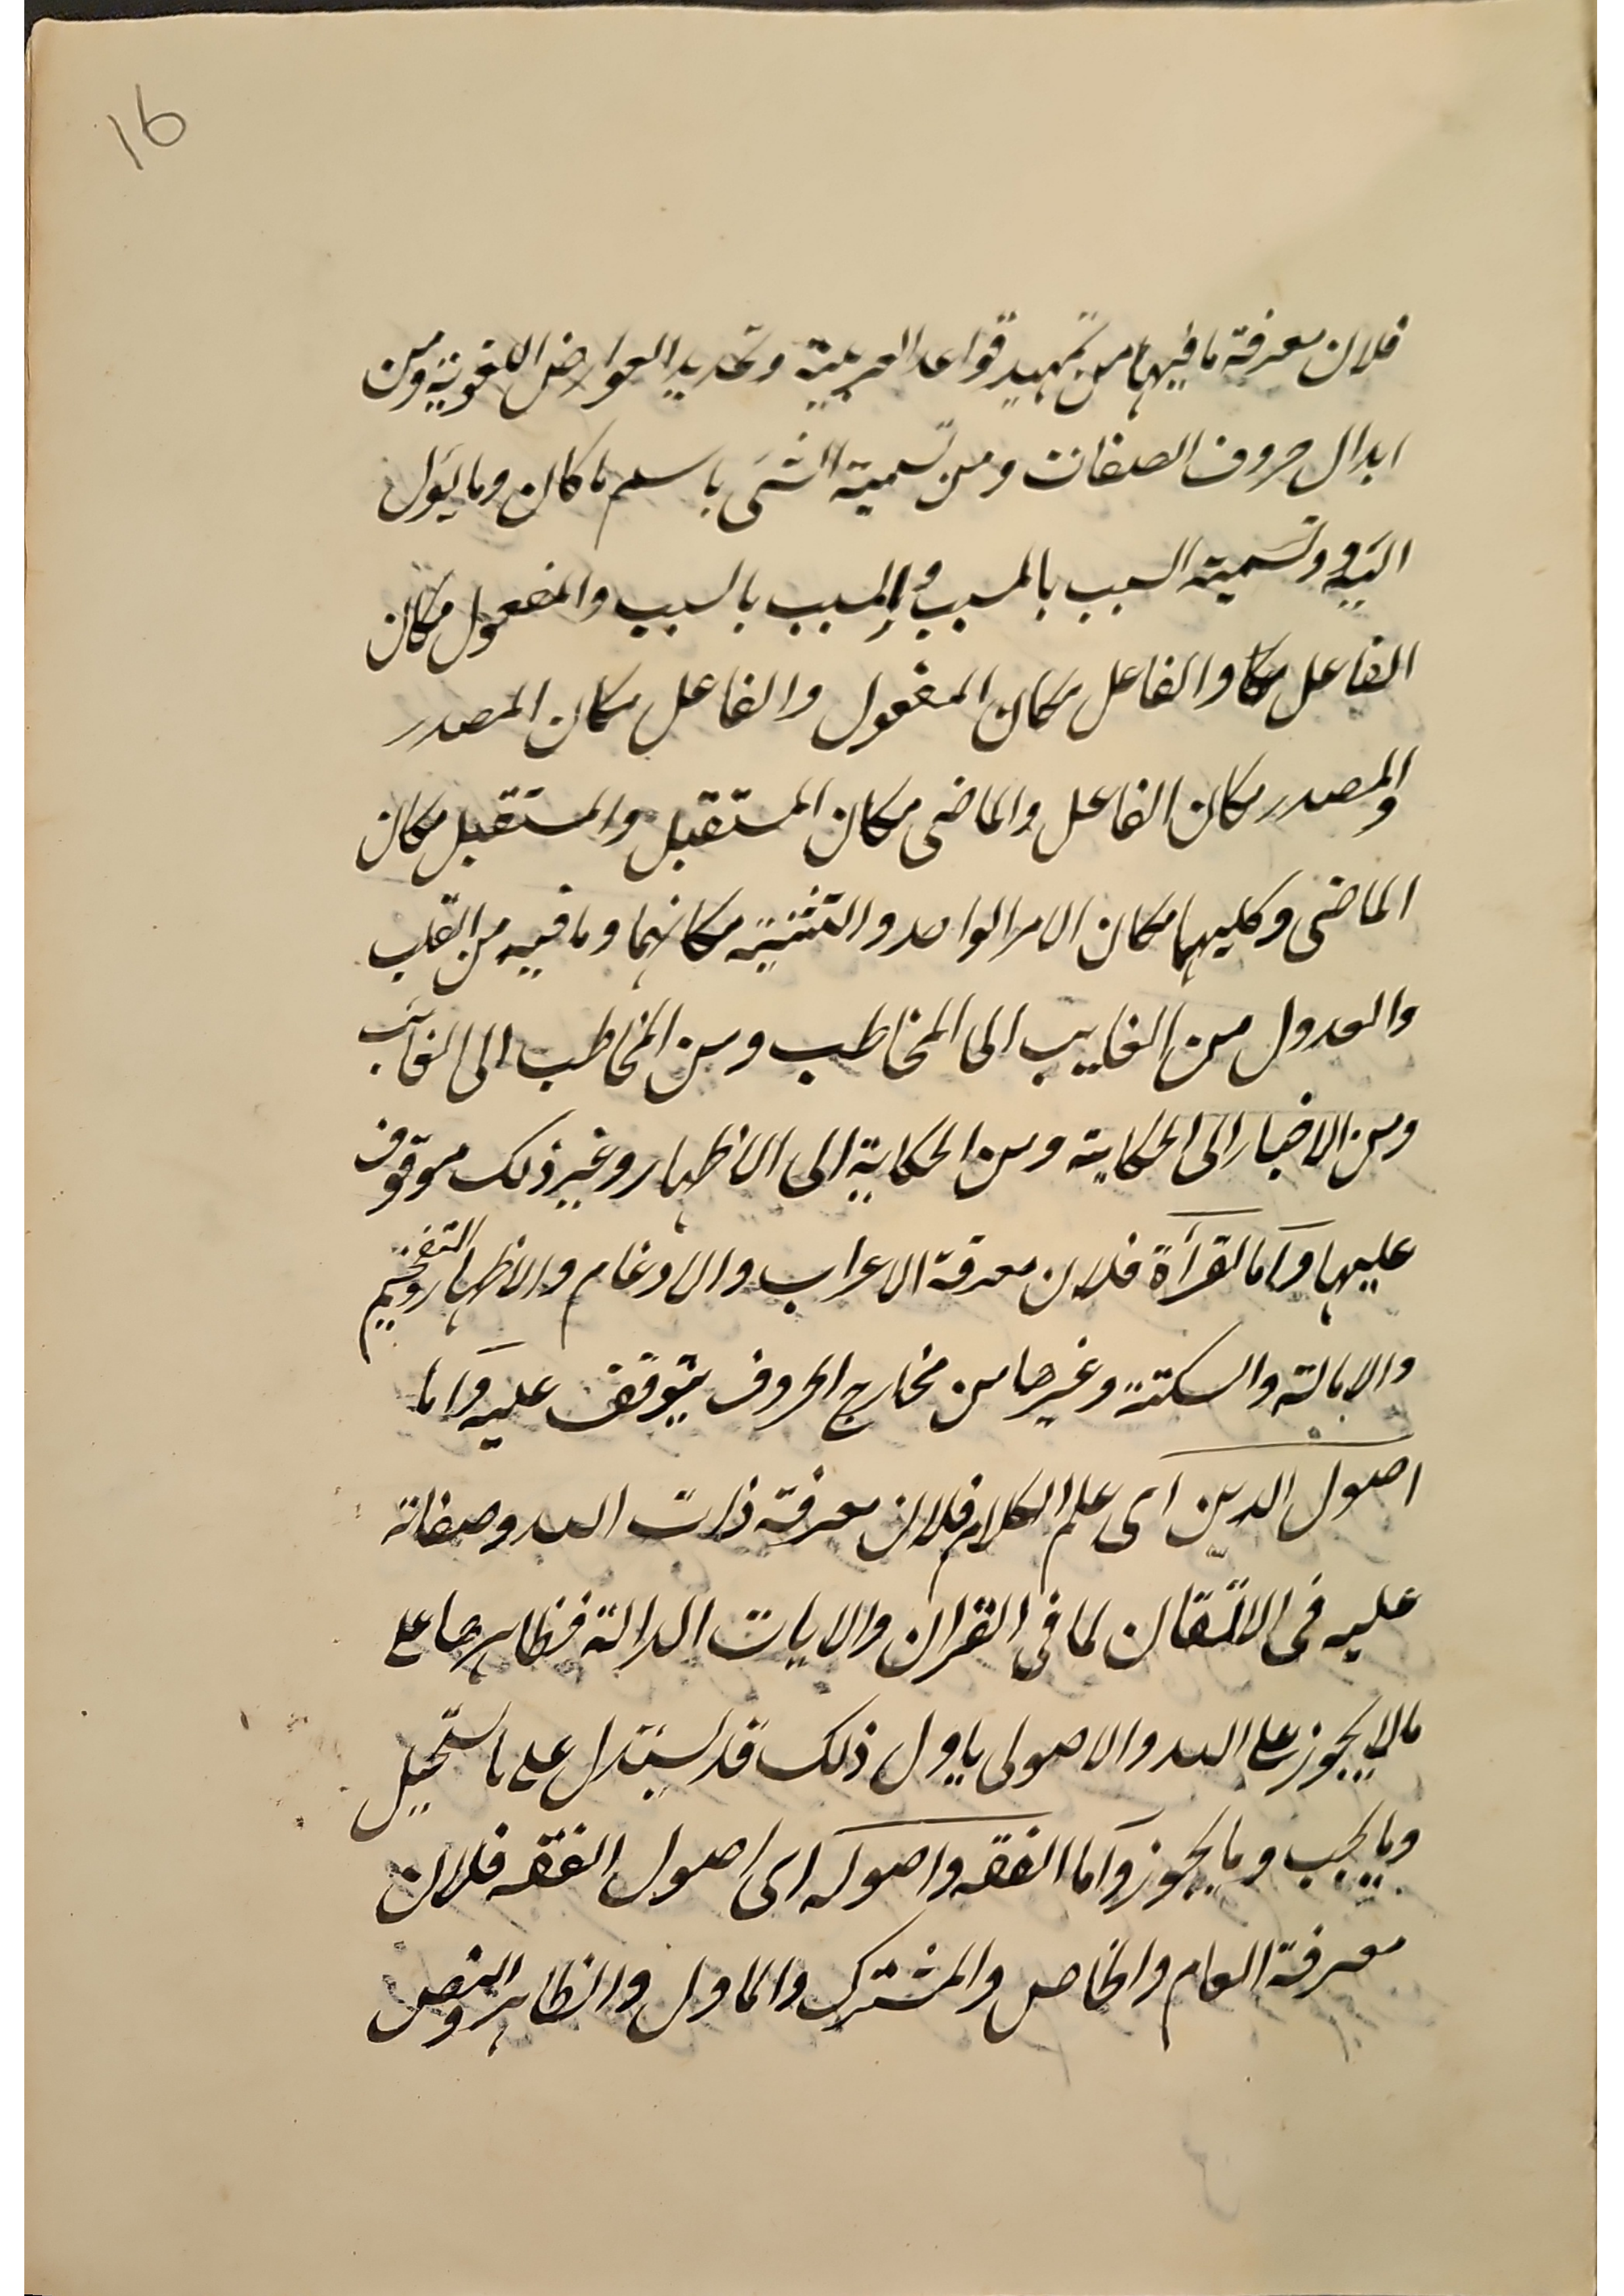 16
فلان معرفة ما فيها من تمهيد قواعد العربية وتحديد العوارض اللغوية ومن
ابدال حروف الصفات ومن تسمية الشى باسم ما كان وما يؤل
اليه وتسمية السبب بالمسبب والمسبب بالسبب والمفعول مكان
الفاعل والفاعل مكان المفعول والفاعل مكان المصدر
والمصدر مكان الفاعل والماضى مكان المستقبل والمستقبل مكان
الماضى وكليهما مكان الامر الواحد والتثنية مكانهما وما فيه من القلب
والعدول من الغايب الى المخاطب ومن المخاطب الى الغائب
ومن الاخبار الى الحكاية ومن الحكاية الى الاظهار وغير ذلك موقوف
عليها واما القرآة فلان معرفة الاعراب والادغام والاظهار والتفخيم
والامالة والسكتة وغيرها من مخارج الحروف يتوقف عليه واما
اصول الدين اى علم الكلام فلان معرفة ذات الله وصفاته
عليه فى الاتقان لما فى القران والايات الدالة فظاهرها على
مالا يجوز على الله والاصولى ياول ذلك قد يستدل على ما يستحيل
وما يجب وما يجوز واما الفقه واصوله اى اصول الفقه فلان
معرفة العام والخاص والمشترك والماول والظاهر والنص